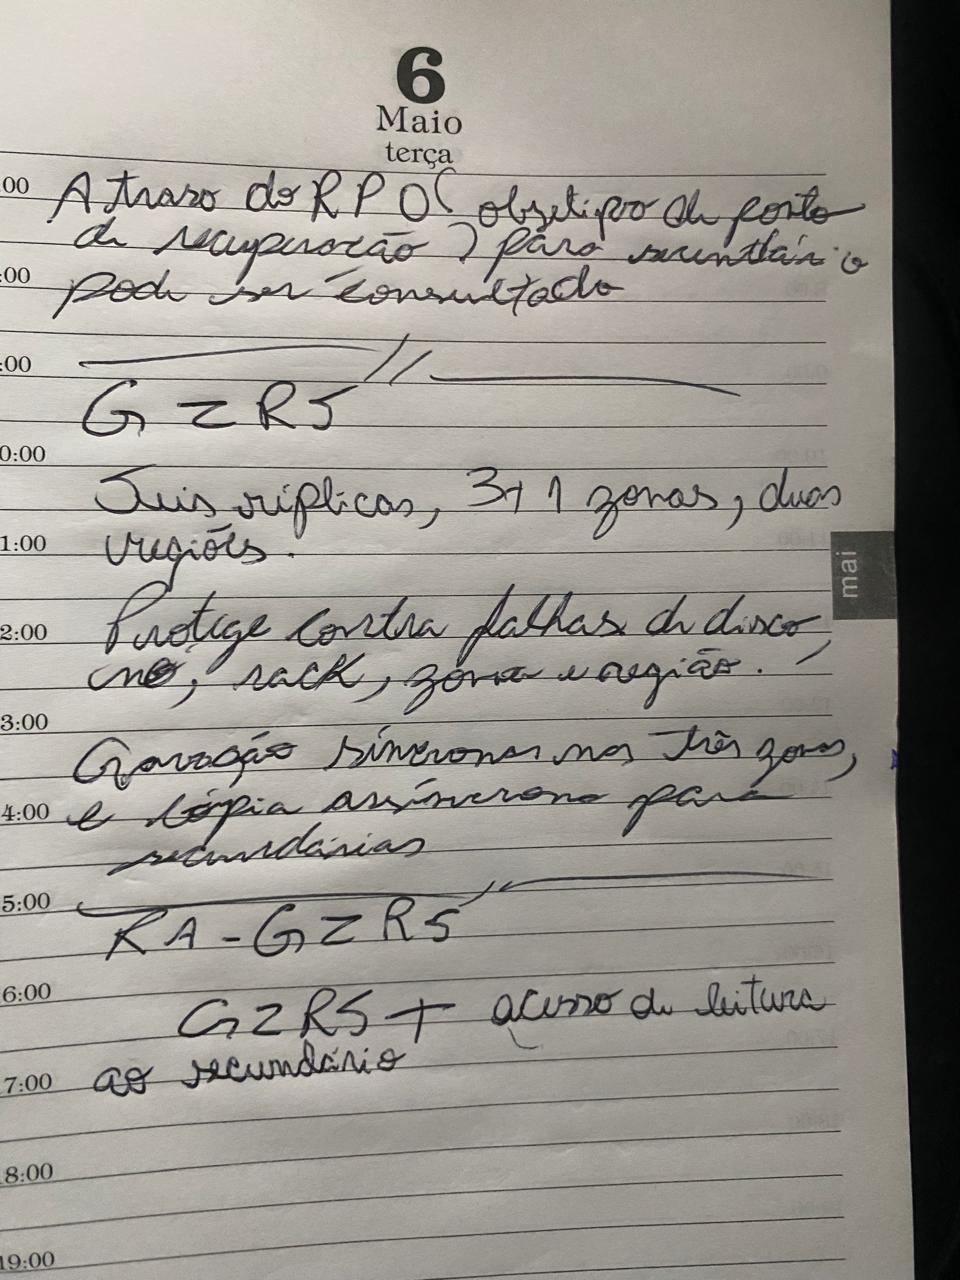 6
Maio
terça
:00 Atraso do RPO( objetivo de ponto
de recuperação ) para secundário
:00 pode ser consultado
:00
GZRS
0:00
Seis réplicas, 3+1 zonas, duas
1:00 regiões.
2:00 Protege contra falhas de disco,
nó, rack, zona e região.
mai
3:00
Gravação síncronas nas três zonas,
4:00 e cópia assíncrona para
secundárias
5:00
RA-GZRS
6:00
GZRS + acesso de leitura
7:00 ao secundário
8:00
19:00